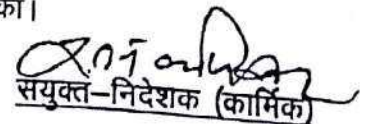 का।
सयुक्त–निदेशक (कार्मिक)